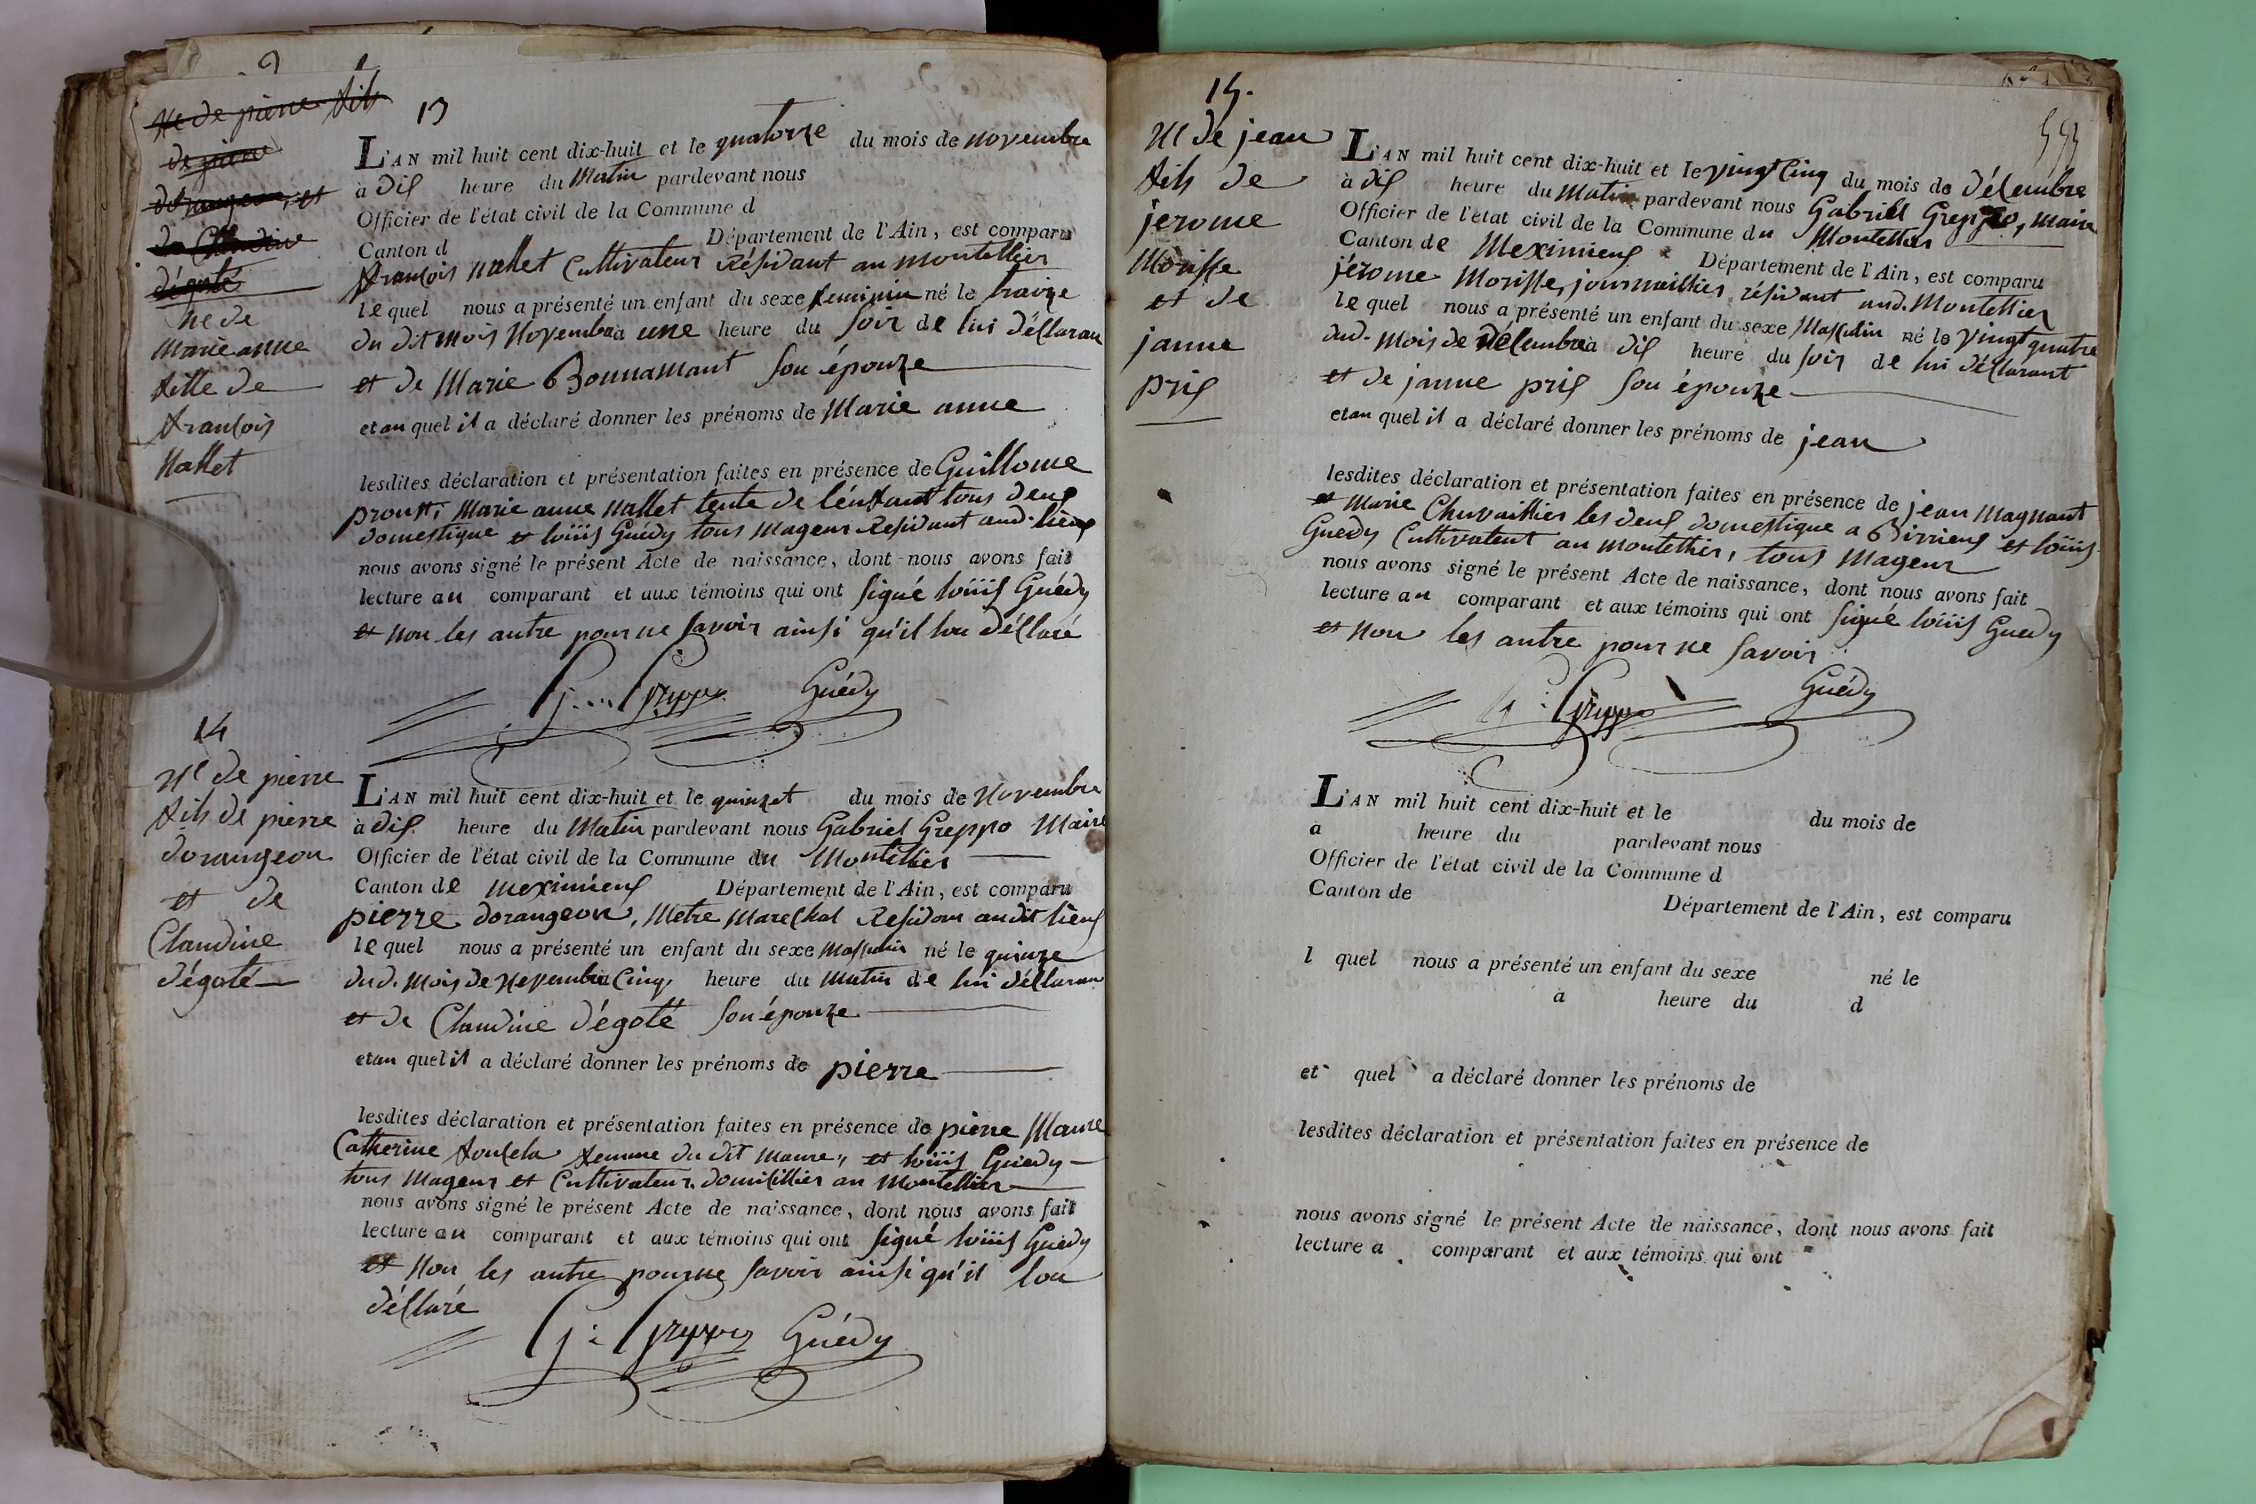 13
Né de pierre fils
de pierre
dorangeon, et
de Claudine
dégoté
né de
marie anne
fille de
françois
nallet
L'AN mil huit cent dix-huit et le quatorze du mois de novembre
à dix heure du Matin pardevant nous
Officier de l'état civil de la Commune d
Canton d Département de l'Ain, est comparu
françois nallet Cultivateur Résidant au montellier
le quel nous a présenté un enfant du sexe feminin né le traize
du dit mois Novembre à une heure du soir de lui déClaran
et de Marie Bonnamant son épouze
et au quel il a déclaré donner les prénoms de Marie anne
lesdites déclaration et présentation faites en présence de Guillome
proust, Marie anne nallet tente de lénfant tous deux
domestique et loüis Guédy tous mageur Résidant aud. lieux
nous avons signé le présent Acte de naissance, dont nous avons fait
lecture au comparant et aux témoins qui ont signé loüis Guédy
et non les autre pour ne savoir ainsi qu'il lon déClaré
G. Greppo Guédy
14
Né de pierre
fils de pierre
dorangeon
et de
Claudine
dégoté
L'AN mil huit cent dix-huit et le quinzet du mois de Novembre
à dix heure du Matin pardevant nous Gabriel Greppo Maire
Officier de l'état civil de la Commune du Montellier
Canton de meximieux Département de l'Ain, est comparu
pierre dorangeon, Metre MareChal Residan audit lieux
le quel nous a présenté un enfant du sexe Massculin né le quinze
dud. mois de Novembre à Cinq heure du matin de lui déClaran
et de Claudine dégoté son épouze
et au quel il a déclaré donner les prénoms de pierre
lesdites déclaration et présentation faites en présence de pierre Maure
Catherine femme du dit maure, et loüis Guédy
tous mageur et Cultivateur domicillier au Montellier
nous avons signé le présent Acte de naissance, dont nous avons fait
lecture au comparant et aux témoins qui ont signé loüis Guédy
et non les autre pour ne savoir ainsi qu'il lon
déClaré
G: Greppo Guédy
15.
Né de jean
fils de
jerome
Morisse
et de
janne
prix
L'AN mil huit cent dix-huit et le vingt Cinq du mois de déCembre
à dix heure du Matin pardevant nous Gabriel Greppo, maire
Officier de l'état civil de la Commune du Montellier
Canton de Meximieux Département de l'Ain, est comparu
jérome Morisse, journaillier résidant aud. Montellier
le quel nous a présenté un enfant du sexe Massculin né le vingt quatre
dud. mois de déCembre à dix heure du soir de lui déClarant
et de janne prix son épouze
et au quel il a déclaré donner les prénoms de jean
lesdites déclaration et présentation faites en présence de jean Magnant
et Marie Chuvaillier les deux domestique a Birrieux et loüis
Guédy Cultivateur au montellier, tous mageur
nous avons signé le présent Acte de naissance, dont nous avons fait
lecture au comparant et aux témoins qui ont signé loüis Guédy
et non les autre pour ne savoir
G: Greppo Guédy
L'AN mil huit cent dix-huit et le du mois de
à heure du pardevant nous
Officier de l'état civil de la Commune d
Canton de Département de l'Ain, est comparu
l quel nous a présenté un enfant du sexe né le
à heure du d
et quel a déclaré donner les prénoms de
lesdites déclaration et présentation faites en présence de
nous avons signé le présent Acte de naissance, dont nous avons fait
lecture a comparant et aux témoins qui ont